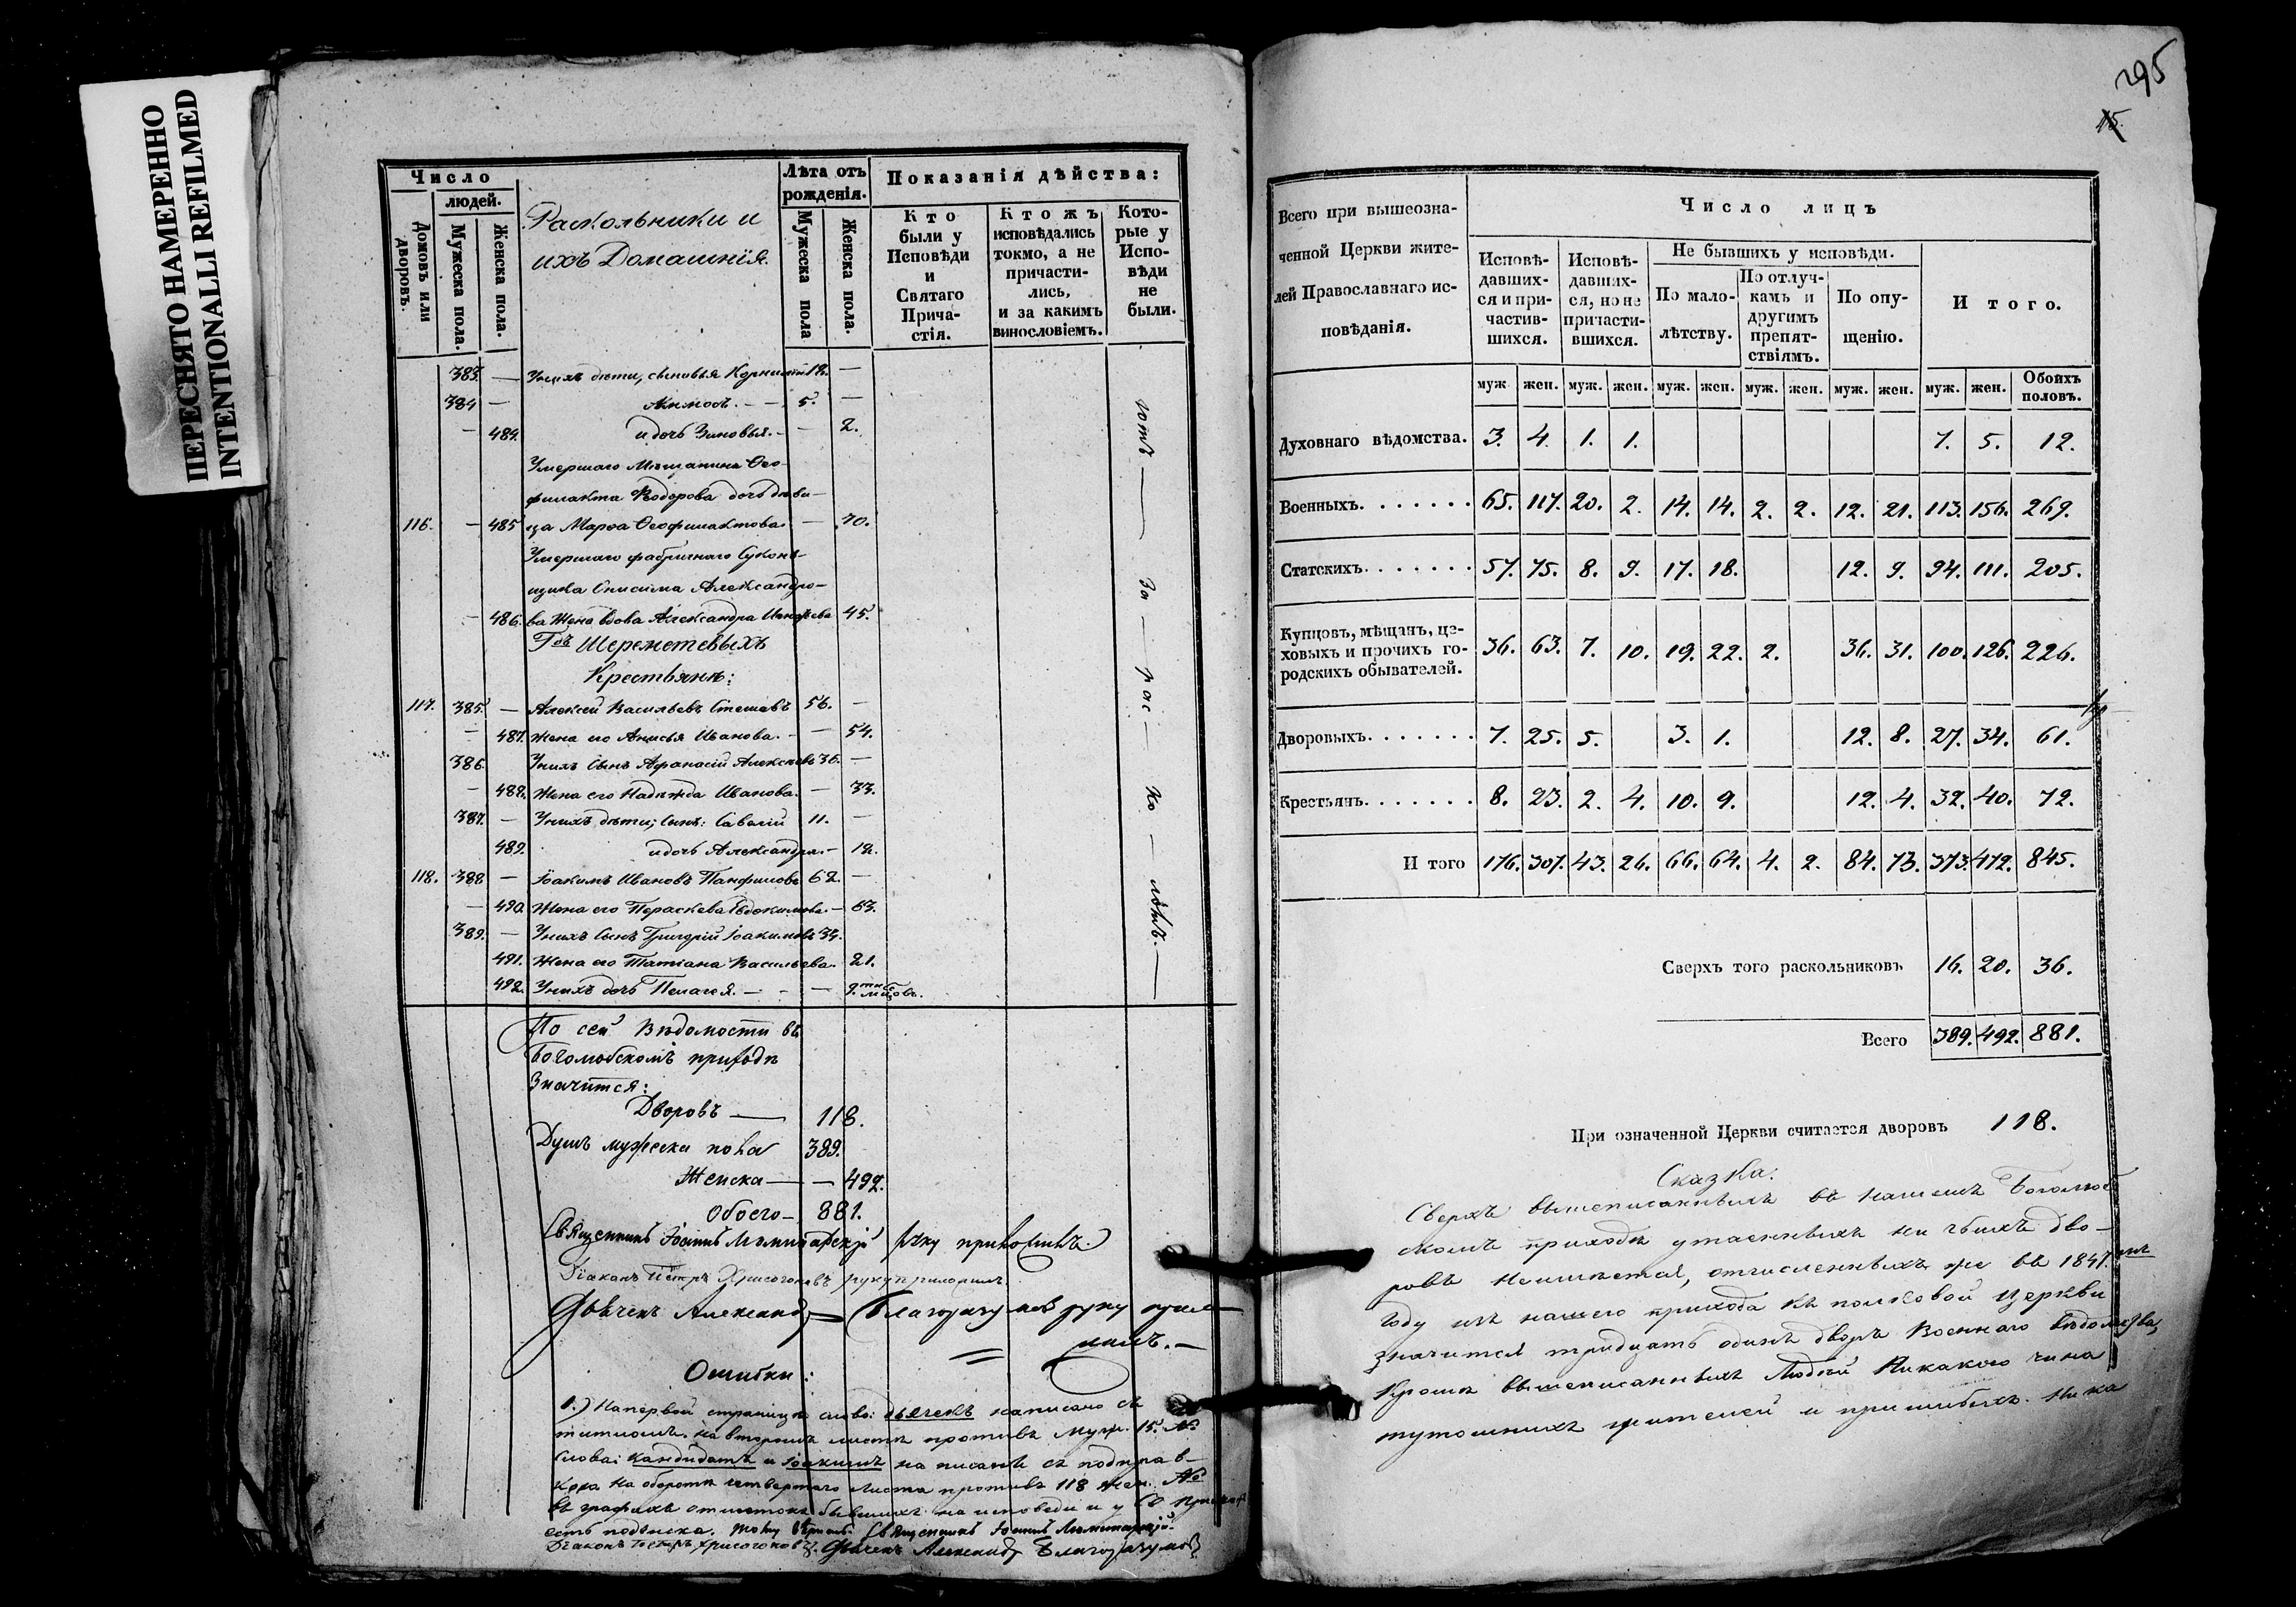 ПЕРЕСНЯТО НАМЕРЕННО
INTENTIONALLI REFILMED
Число
людей.
Домовъ или дворовъ.
Мужеска пола.
Женска пола.
Раскольники и
ихъ Домашнія.
Лѣта отъ
рожденія.
Мужеска пола
Женска пола.
Показанія дѣйства:
Кто
были у
Исповѣди
и
Святаго
Прича-
стія.
Ктожъ
исповѣдались
токмо, а не
причасти-
лись,
и за какимъ
винословіемъ.
Кото-
рые у
Испо-
вѣди
не
были.
383. — У нихъ дѣти, сыновья 12. —
384 — Амосъ. — — 5. —
— 484. и дочь Зиновья. — — 2.
Умершаго Мѣщанина Ѳео-
филакта Ѳедорова дочь дѣви-
116. — 485 ца Марѳа Ѳеофилактова. — 70.
Умершаго фабричнаго Сукон-
щика Онисима Александро-
— 486. ва Жена вдова Александра 45.
Гдъ Шереметевыхъ
Крестьяне:
117. 385. — Алексѣй Васильевъ 56. —
— 487. Жена его Анисья Иванова. — — 54.
386. У нихъ Сынъ Афанасій Алексѣевъ 36. —
— 488. Жена его Надежда Иванова. — 33.
387. — У нихъ дѣти; Сынъ: Савелій 11. —
489. и дочь Александра. — 12.
118. 388 — Іоакимъ Ивановъ Панфиловъ 62. —
— 490. Жена его Параскева Евдокимова. — 63.
389. — У нихъ Сынъ Григорій Іоакимовъ 34.
491. Жена его Татіана Васильева. 21.
492. У нихъ дочь Пелагея. — — — 9.ти мѣсяцовъ.
за — рас — ко — ломъ. —
По сей Вѣдомости въ
Боголюбскомъ приходѣ
Значится:
Дворовъ — 118.
Душъ мужеска пола 389.
Женска — — 492.
Обоего — 881.
Священникъ Іоаннъ руку приложилъ.
Діаконъ Петръ Хрисогоновъ руку приложилъ
Дьячекъ Александръ Благоразумовъ руку прило-
жилъ. —
Ошибки:
1.) На первой страницѣ слово: дьячекъ написано съ
титломъ. на второмъ листѣ противъ Муж. 15. №
слова: кандидатъ и Іоакимъ написаны съ подправ-
кою на оборотѣ четвертаго листа противъ 118 жен. №
въ графахъ отмѣтокъ бывшихъ на исповѣди и у Св. Прича
есть подчиска. Священникъ Іоаннъ
Діаконъ Петръ Хрисогоновъ. Дьячекъ Александръ Благоразумовъ
295
15.
Всего при вышеозна-
ченной Церкви жите-
лей Православнаго ис-
повѣданія.
Число лицъ
Исповѣ-
давших-
ся и при-
частив-
шихся.
Исповѣ-
давших-
ся, но не
причасти-
вшихся.
Не бывшихъ у исповѣди.
По мало-
лѣтству.
По отлуч-
камъ и
другимъ
препят-
ствіямъ.
По опу-
щенію.
И того.
муж. жен. муж. жен. муж. жен. муж. жен. муж. жен. муж. жен. Обоихъ половъ.
Духовнаго вѣдомства. 3. 4. 1. 1. 7. 5. 12.
Военныхъ. 65. 117. 20. 2. 14. 14. 2. 2. 12. 21. 113. 156. 269.
Статскихъ. 57. 75. 8. 9. 17. 18. 12. 9. 94. 111. 205.
Купцовъ, мѣщанъ, це-
ховыхъ и прочихъ го-
родскихъ обывателей. 36. 63. 7. 10. 19. 22. 2. 36. 31. 100. 126. 226.
Дворовыхъ. 7. 25. 5. 3. 1. 12. 8. 27. 34. 61.
Крестьянъ. 8. 23. 2. 4. 10. 9. 12. 4. 32. 40. 72.
И того 176. 307. 43. 26. 66. 64. 4. 2. 84. 73. 373. 472. 845.
Сверхъ того раскольниковъ 16. 20. 36.
Всего 389. 492. 881.
При означенной Церкви считается дворовъ 118.
Сказка:
Сверхъ вышеписанныхъ въ нашемъ Боголюб
скомъ приходѣ утаенныхъ ни чьихъ дво-
ровъ не имѣется, отчисленныхъ же въ 1847.мъ
Году изъ нашего прихода къ полковой церкви
значится тридцать одинъ дворъ Военнаго вѣдомства,
Кромѣ вышеписанныхъ Людей Никакого чина
тутошнихъ жителей и пришлыхъ ника